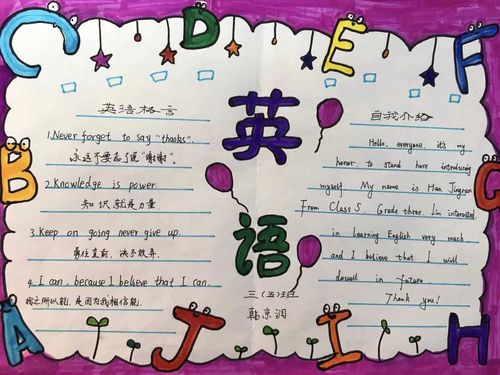 C D E F
B
A
J I H
G
英语
英语格言
1.Never forget to say "thanks".
永远不要忘了说"谢谢".
2.Knowledge is power
知识就是力量
3.Keep on going never give up.
勇往直前,决不放弃.
4.I can, because I believe that I can.
我之所以能,是因为我相信能.
自我介绍
Hello, everyone, it's my
honor to stand here introducing
myself. My name is Han Jingrun
From Class 5, Grade three I'm interested
in learning English very much
and I believe that I will
dowell in future.
Thank you!
三(五)班
韩京润